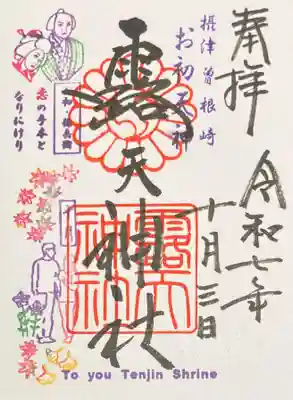 奉拝
令和七年
十月三日
摂津曽根崎
お初天神
露天神社
露天
神社
恋の手本と
なりにけり
To you Tenjin Shrine